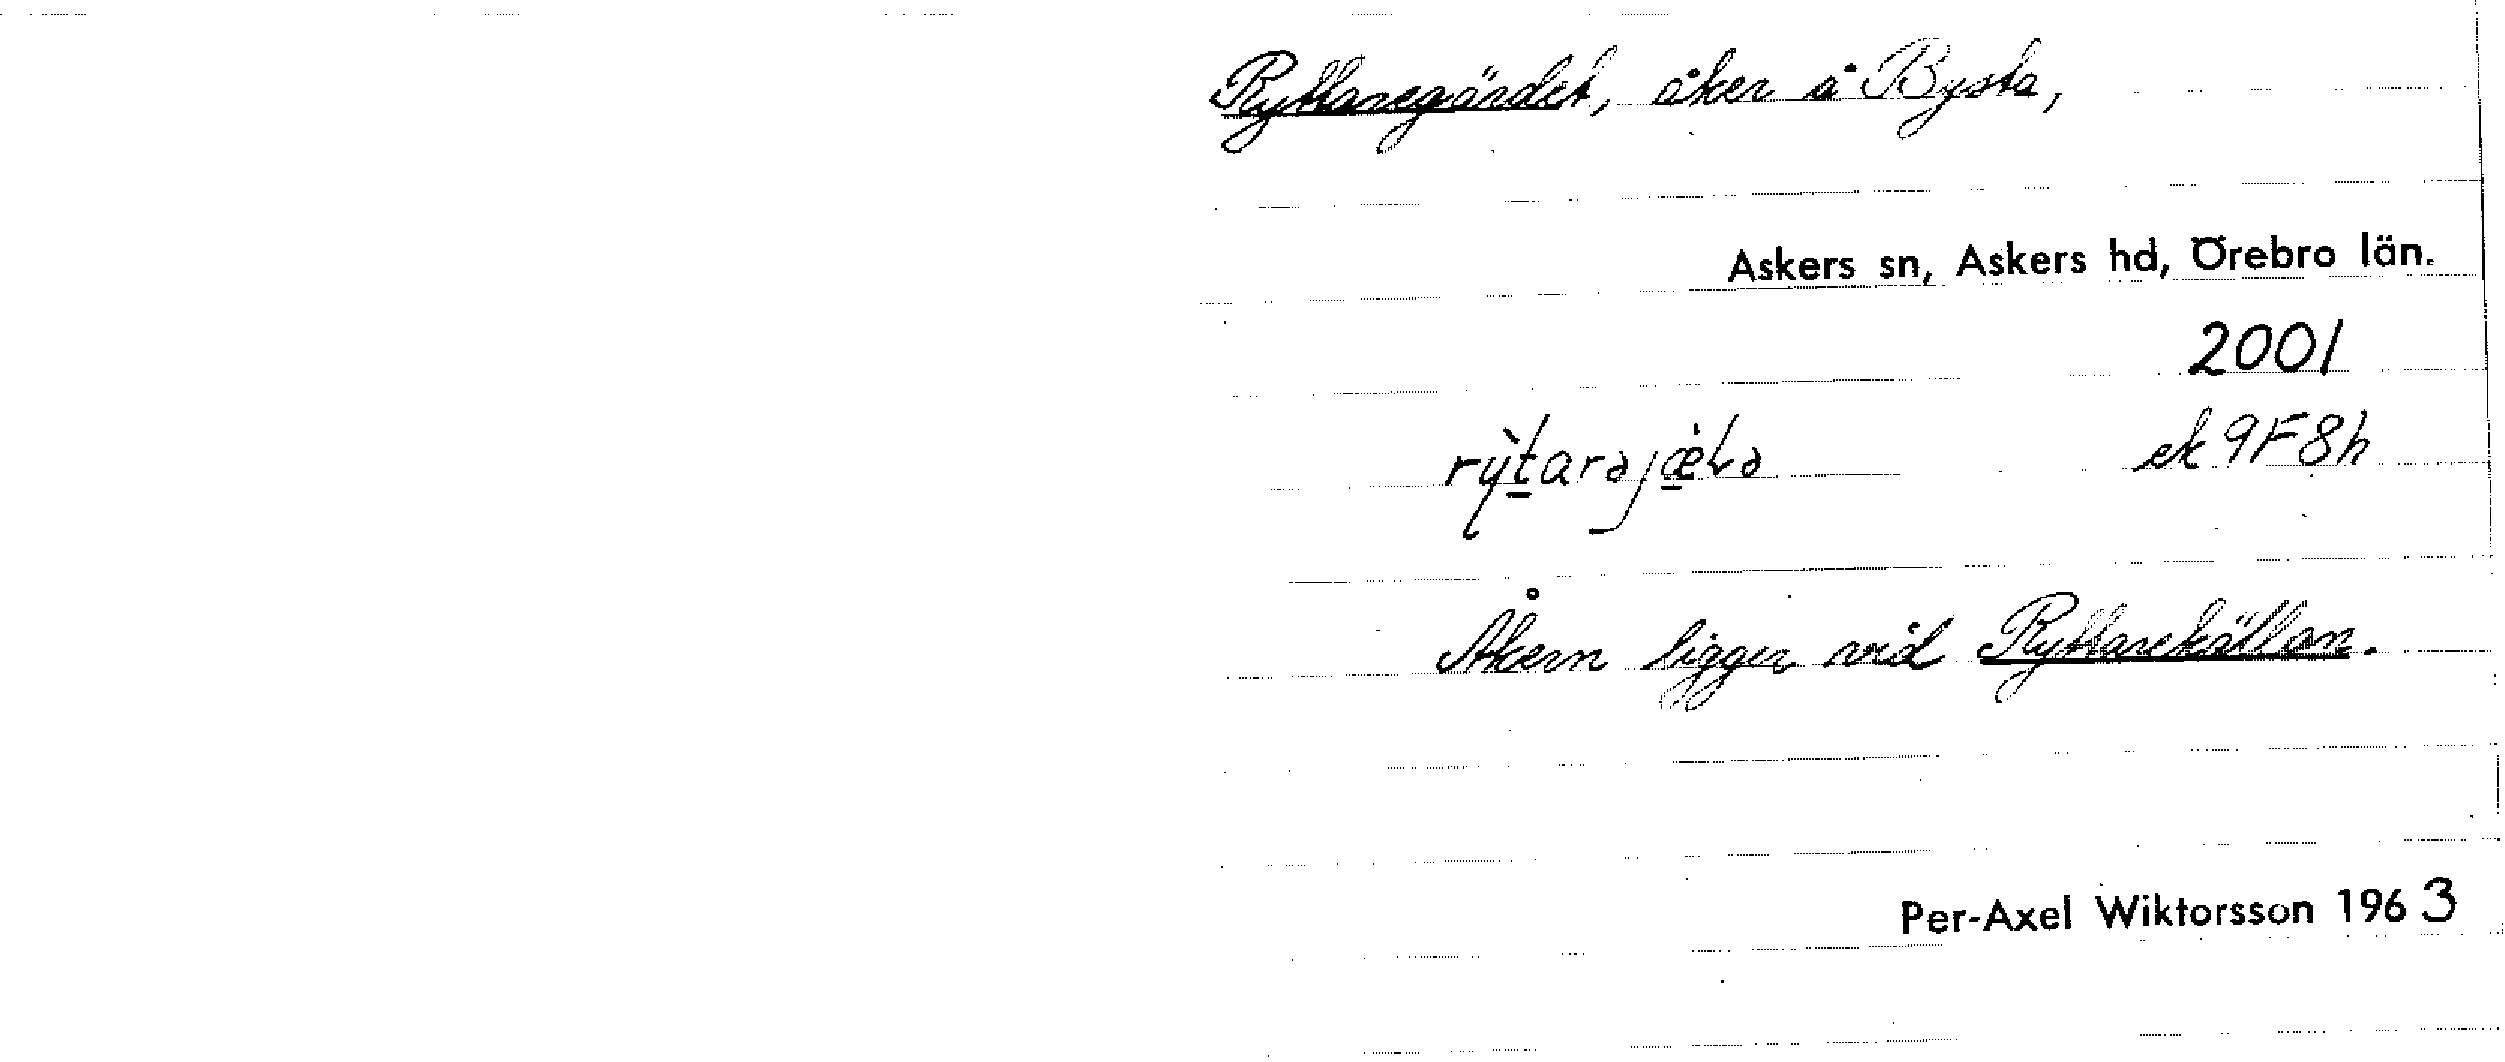 Ryttaregärdet, åker å Bysta,
Askers sn, Askers hd, Örebro län.
2001
ek 9F8h
Åkern ligger vid Ryttarekällan.
Per-Axel Wiktorsson 1963